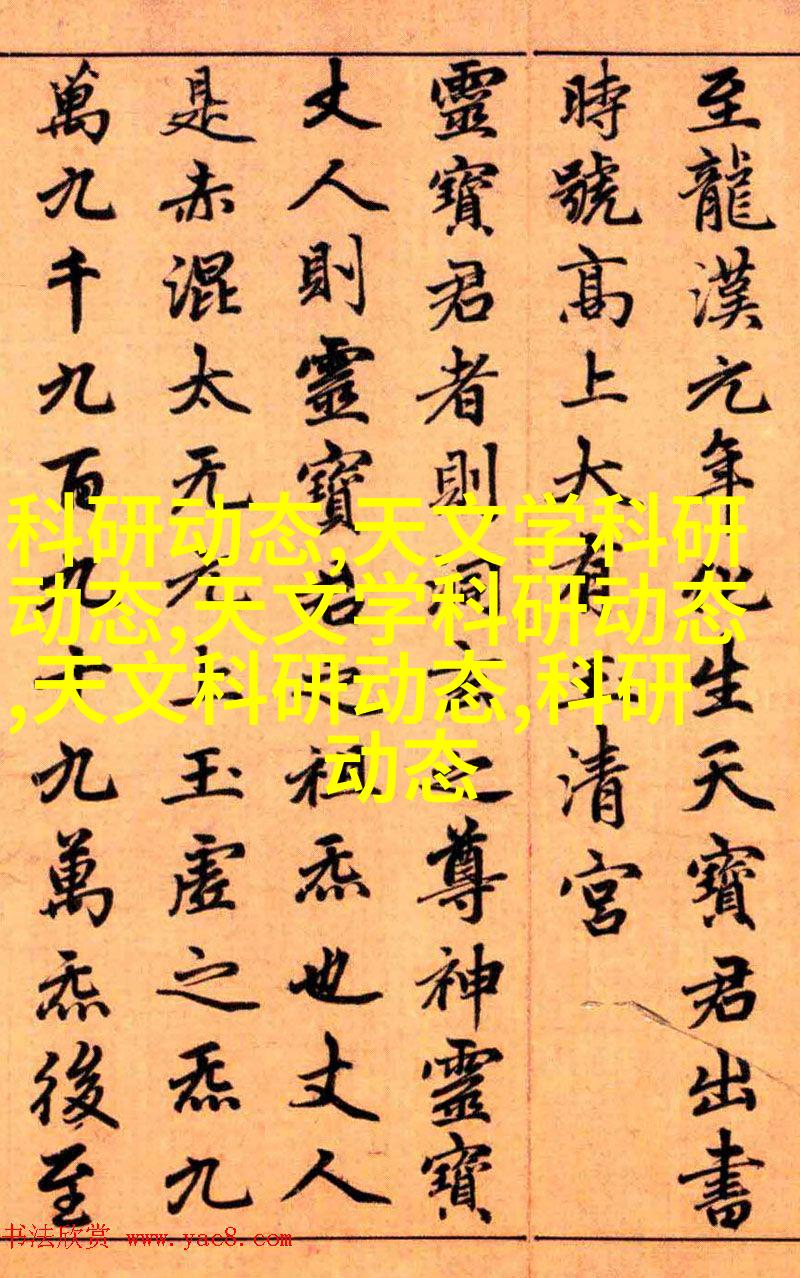 至龍漢元年化生天寶君出書
時號高上大有玉清宮
靈寶君者則洞玄之尊神靈寶
丈人則靈寶君之祖炁也丈人
是赤混太无元上玉虛之炁九
萬九千九百九十九萬炁後至
科研动态,天文学科研
动态,天文学科研动态
,天文科研动态,科研
动态
书法欣赏 www.yac8.com